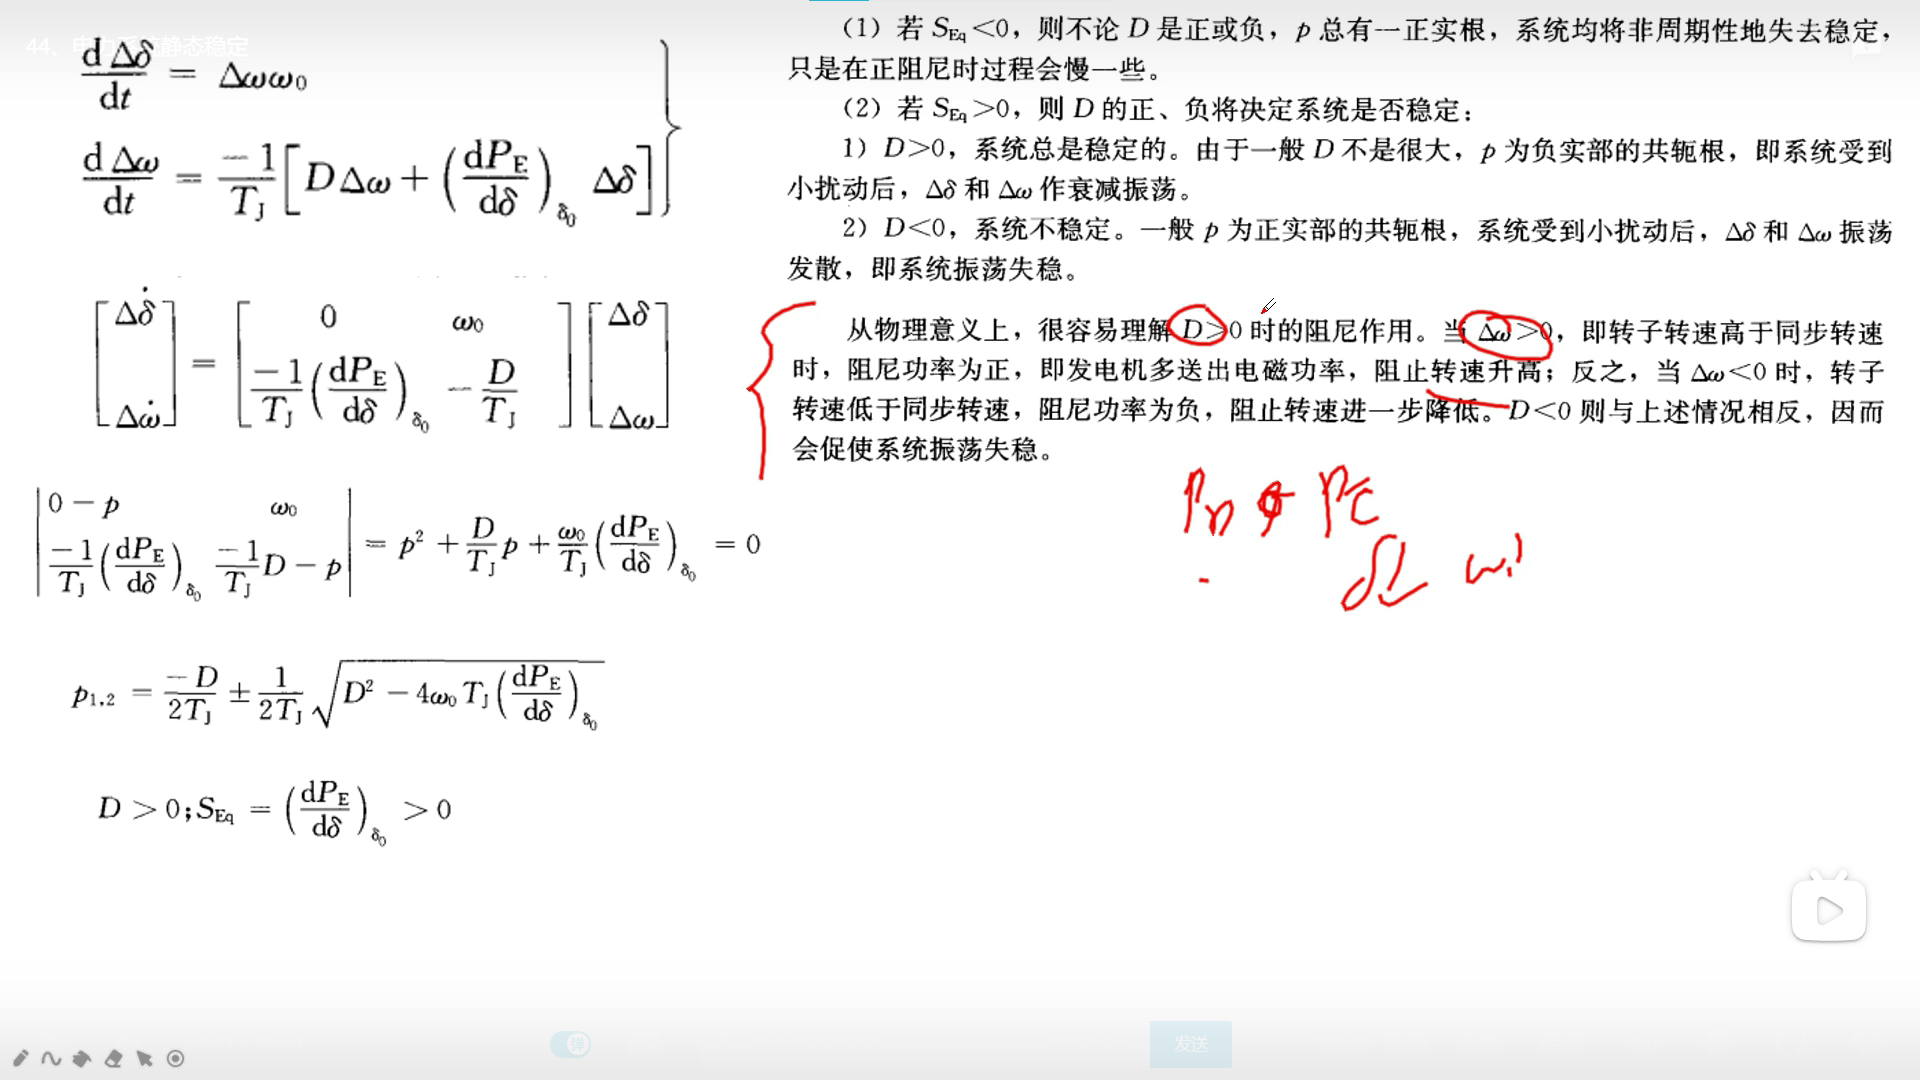 44、电力系统静态稳定
dΔδ/dt = Δωω₀
dΔω/dt = -1/T_J [DΔω + (dP_E/dδ)_δ₀ Δδ]
[Δδ̇ Δω̇] = [0 ω₀ -1/T_J (dP_E/dδ)_δ₀ -D/T_J] [Δδ Δω]
|0-p ω₀ -1/T_J (dP_E/dδ)_δ₀ -1/T_J D-p| = p² + D/T_J p + ω₀/T_J (dP_E/dδ)_δ₀ = 0
p₁,₂ = -D/2T_J ± 1/2T_J √(D² - 4ω₀T_J (dP_E/dδ)_δ₀)
D > 0; S_Eq = (dP_E/dδ)_δ₀ > 0
（1）若 S_Eq<0，则不论 D 是正或负，p 总有一正实根，系统均将非周期性地失去稳定，
只是在正阻尼时过程会慢一些。
（2）若 S_Eq>0，则 D 的正、负将决定系统是否稳定：
1）D>0，系统总是稳定的。由于一般 D 不是很大，p 为负实部的共轭根，即系统受到
小扰动后，Δδ 和 Δω 作衰减振荡。
2）D<0，系统不稳定。一般 p 为正实部的共轭根，系统受到小扰动后，Δδ 和 Δω 振荡
发散，即系统振荡失稳。
从物理意义上，很容易理解 D>0 时的阻尼作用。当 Δω>0，即转子转速高于同步转速
时，阻尼功率为正，即发电机多送出电磁功率，阻止转速升高；反之，当 Δω<0 时，转子
转速低于同步转速，阻尼功率为负，阻止转速进一步降低。D<0 则与上述情况相反，因而
会促使系统振荡失稳。
P_D P_E
发送